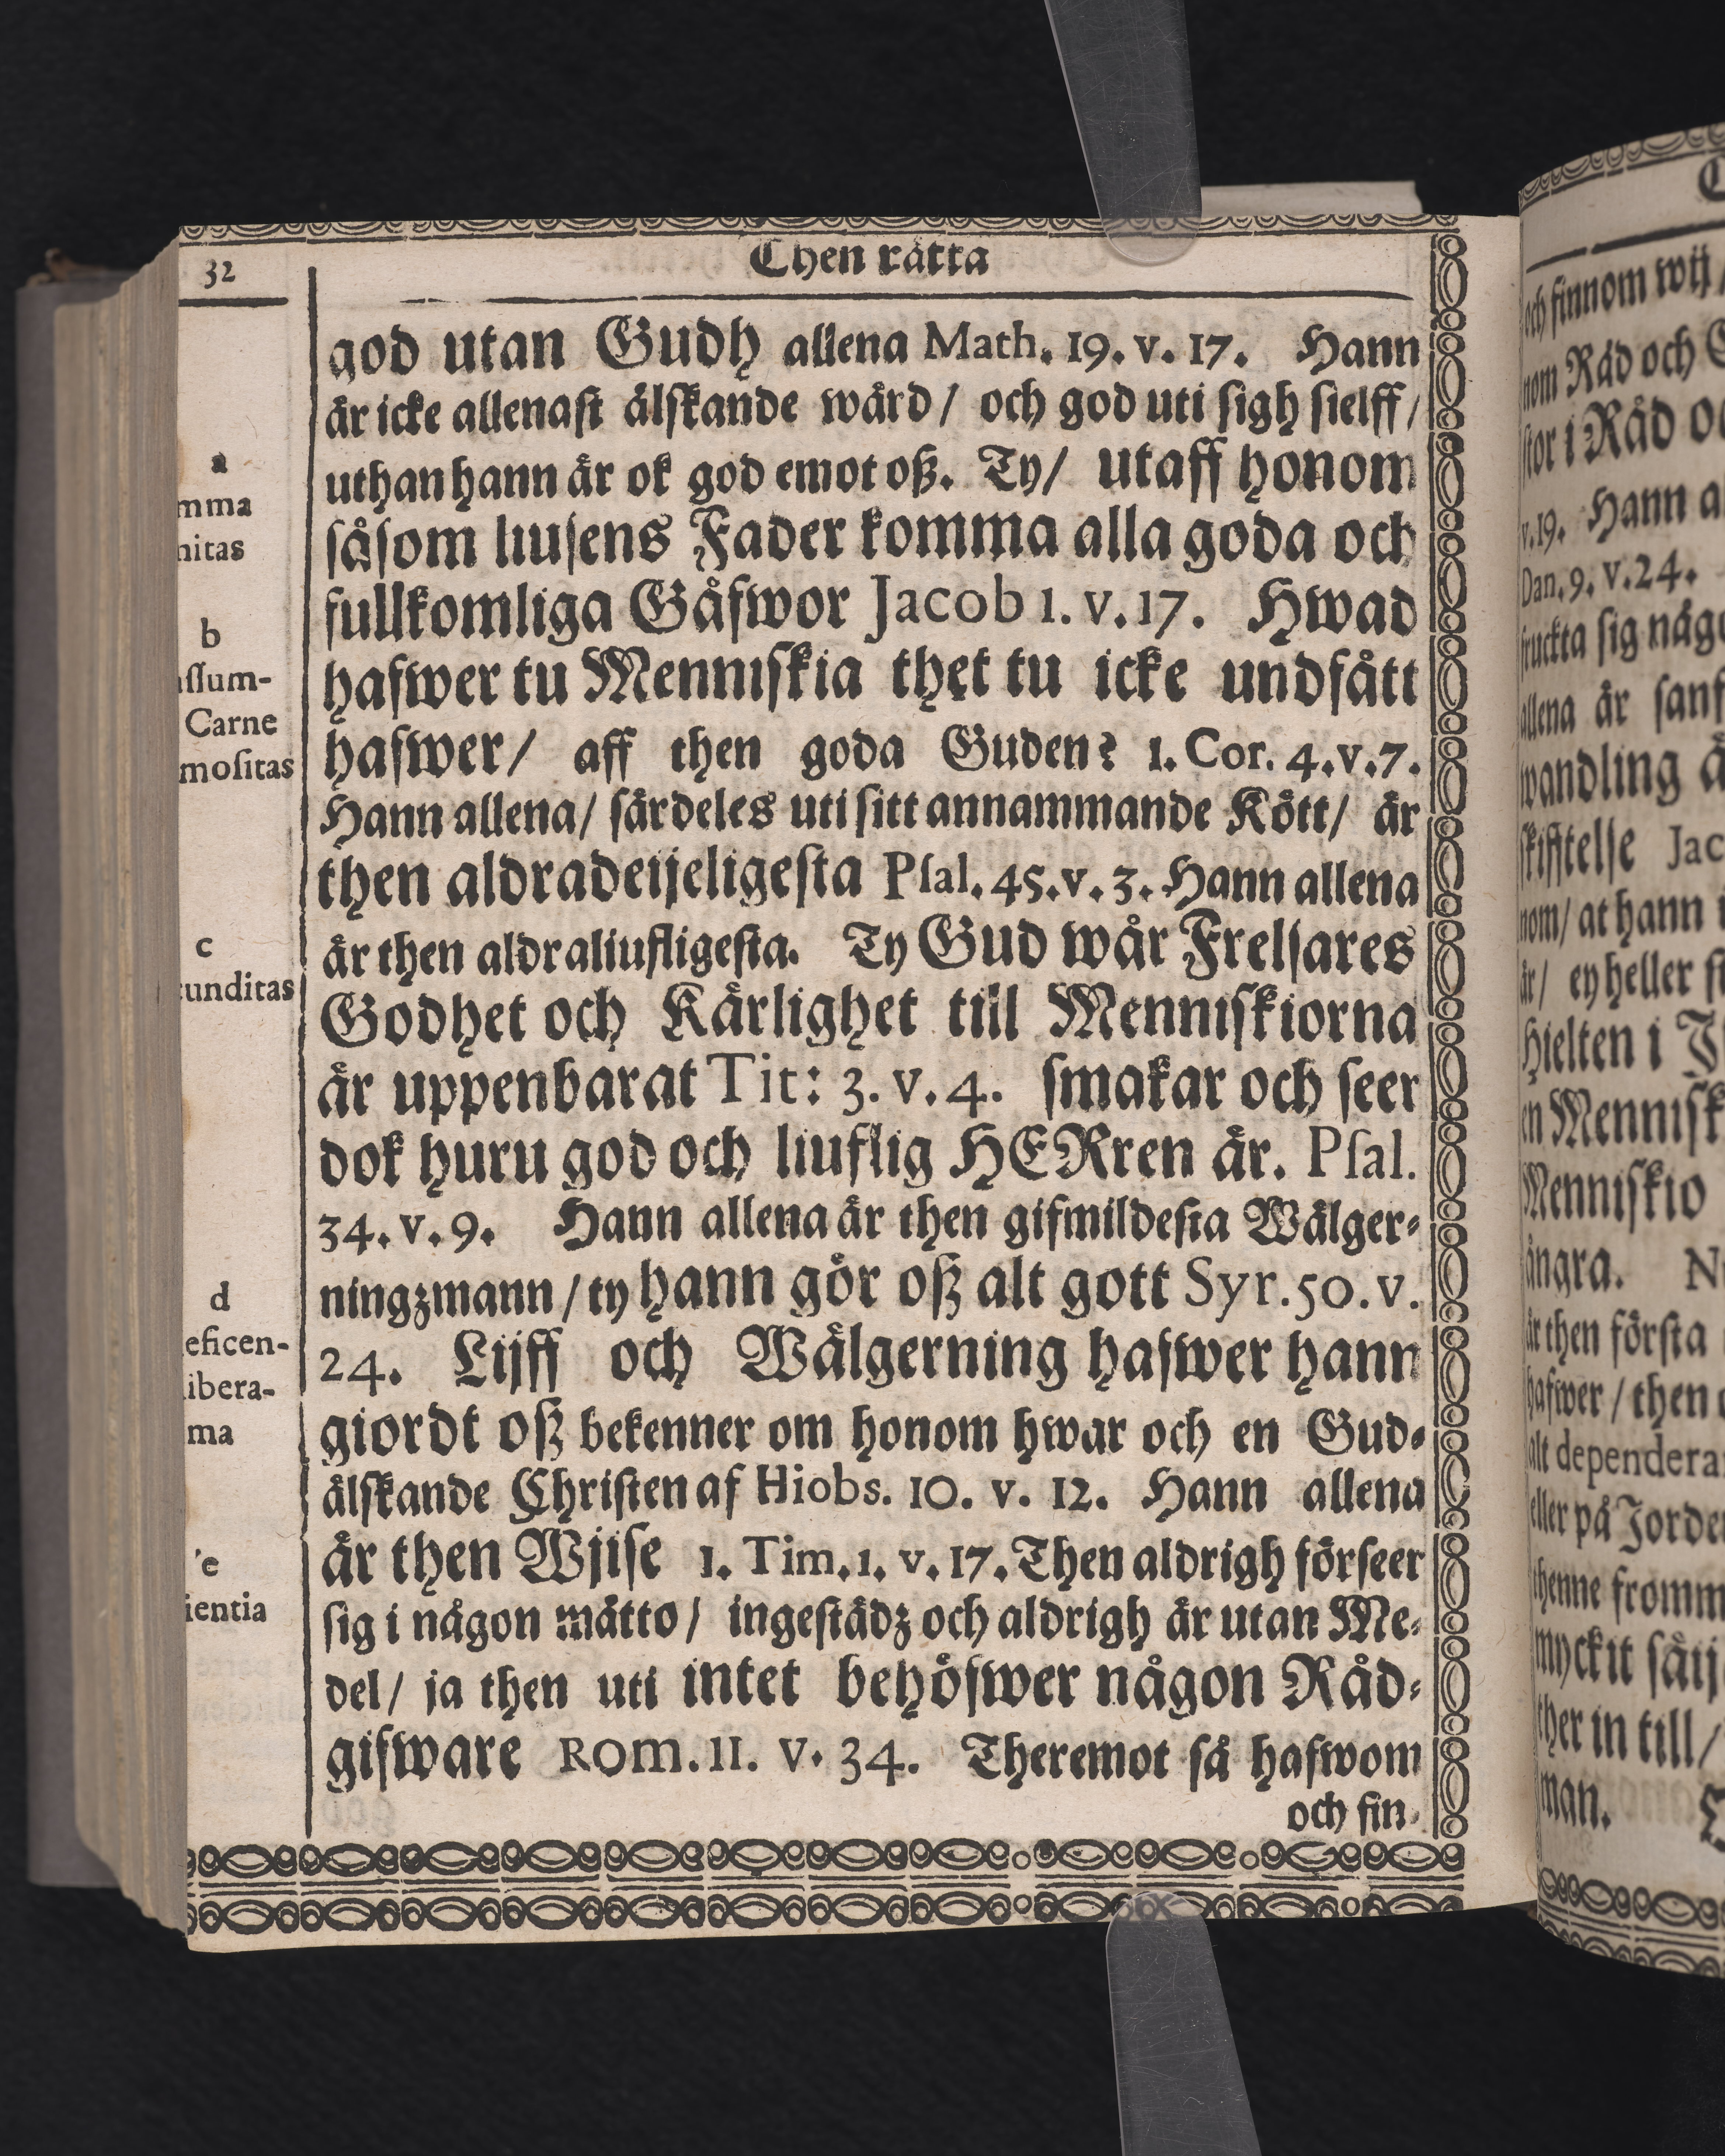 32
Then rätta
god utan Gudh allena Math. 19. v. 17. Hann
är icke allenast älskande wärd / och god uti sigh sielff /
uthan hann är ok god emot oß. Ty / utaff honom
såsom liusens Fader komma alla goda och
fullkomliga Gåfwor Jacob 1. v. 17. Hwad
hafwer tu Menniskia thet tu icke undfått
hafwer / aff then goda Guden? 1. Cor. 4. v. 7.
Hann allena / särdeles uti sitt annammande Kött / är
then aldradeijeligesta Psal. 45. v. 3. Hann allena
är then aldraliufligesta. Ty Gud wår Frelsares
Godhet och Kärlighet till Menniskiorna
är uppenbarat Tit: 3. v. 4. smakar och seer
dok huru god och liuflig HERren är. Psal.
34. v. 9. Hann allena är then gifmildesta Wälger-
ningzmann / ty hann gör oß alt gott Syr. 50. v.
24. Lijff och Wälgerning hafwer hann
giordt oß bekenner om honom hwar och en Gud-
älskande Christen af Hiobs. 10. v. 12. Hann allena
är then Wjise 1. Tim. 1. v. 17. Then aldrigh förseer
sig i någon måtto / ingestädz och aldrigh är utan Me-
del / ja then uti intet behöfwer någon Råd-
gifware Rom. 11. v. 34. Theremot så hafwom
och fin-
a
mma
nitas
b
ssum-
Carne
mositas
c
cunditas
d
eficen-
libera-
ma
e
ientia
och finnom wij /
nom Råd och
stor i Råd
v. 19. Hann
Dan. 9. v. 24.
fruckta sig
allena är
wandling
skifftelse
nom / at hann
är / ey heller
Hielten i
en
Menniskio
ångra.
är then första
hafwer / then
alt dependera
eller på
thenne
myckit
ther in till /
man.